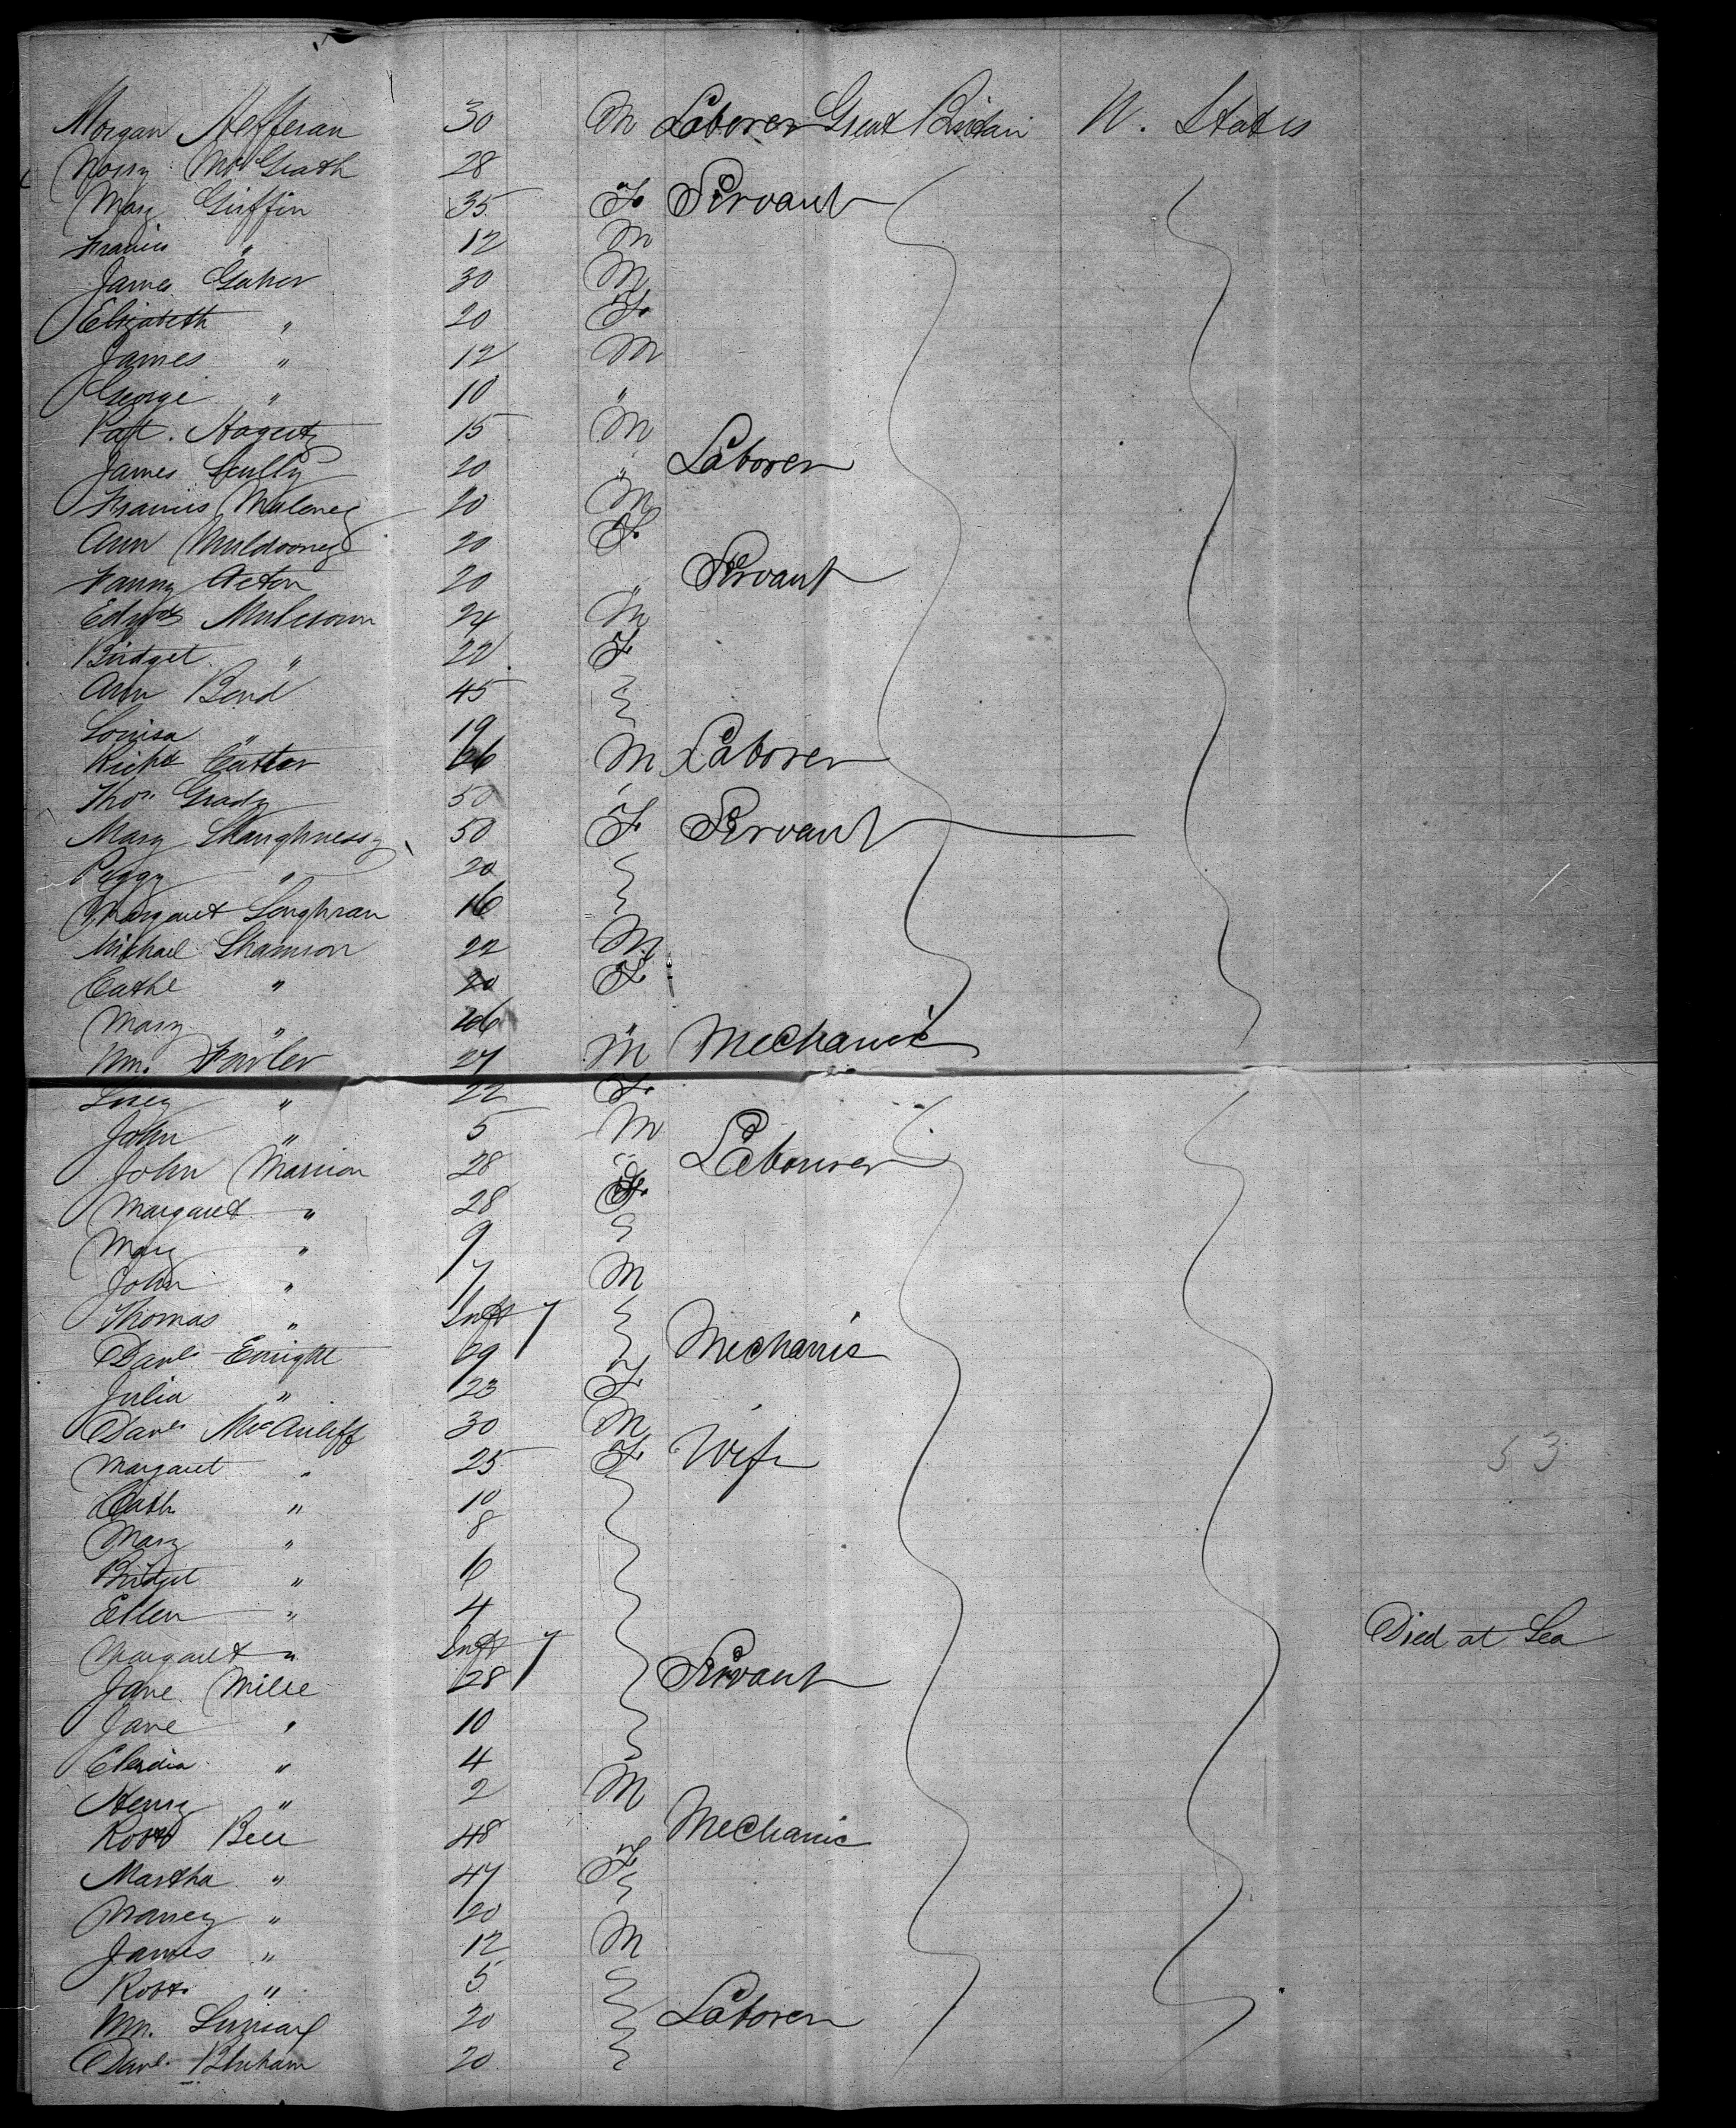 Morgan Hefferan 30 M Laborer Great Britain U. States
Mary McGrath 28
Mary Griffin 35 F. Servant
Francis " 12 M
James Gaher 30 M
Elizabeth " 20 F.
James " 12 M
George " 10 "
Pat. Hagerty 15 M
James Scully 20 " Laborer
Francis Maloney 20 M
Ann Muldooney 20 F.
Fanny Acton 20 " Servant
Edwd 24 M
Bridget " 22 F
Ann Bond 45
Louisa " 19
Richd Cutter 26 M Laborer
Thos. Grady 50 "
Mary Shaughnessy 50 F. Servant
Peggy " 20
Margaret Loughran 16
Michael Shannon 22 M
Cathe " 20 F.
Mary " 26 "
Wm. Fowler 27 M Mechanic
Lucy " 22 F.
John " 5 M
John Marrion 28 " Labourer
Margaret " 28 F.
Mary " 9
John " 7 M
Thomas " Inft 7
Danl. Enright 29 Mechanic
Julia " 23 F.
Danl. McAuliff 30 M
Margaret " 25 F. Wife
Cath " 10
Mary " 8
Bridget " 6
Ellen " 4
Margaret " Inft 7 Died at Sea
Jane Mille 28 Servant
Jane " 10
" 4
Henry " 2 M
Robt Bell 48 Mechanic
Martha " 47 F.
Nancy " 20
James " 12 M
Robt. " 5
Wm. 20 Laborer
Danl. 20
53